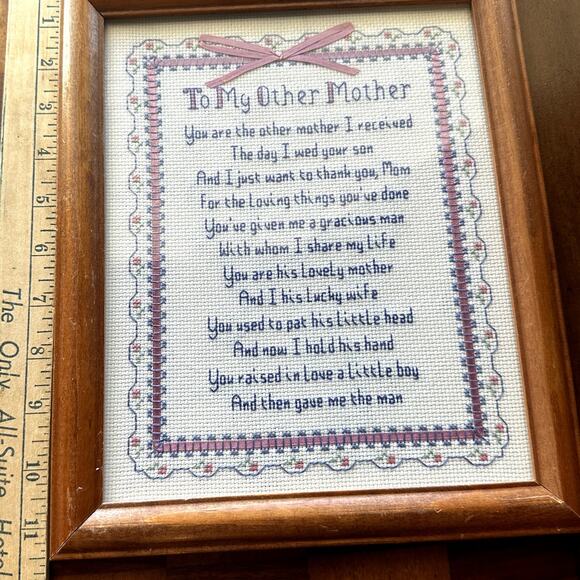 To My Other Mother
You are the other mother I received
The day I wed your son
And I just want to thank you, Mom
For the loving things you've done
You've given me a gracious man
With whom I share my life
You are his lovely mother
And I his lucky wife
You used to pat his little head
And now I hold his hand
You raised in love a little boy
And then gave me the man
2
3
4
5
6
7
8
9
10
11
The Only All-Suite Hotel